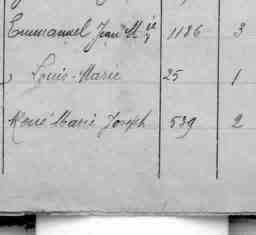 Emmanuel Jean M ie 1186 3
Louis-Marie 25 1
René Marie Joseph 539 2